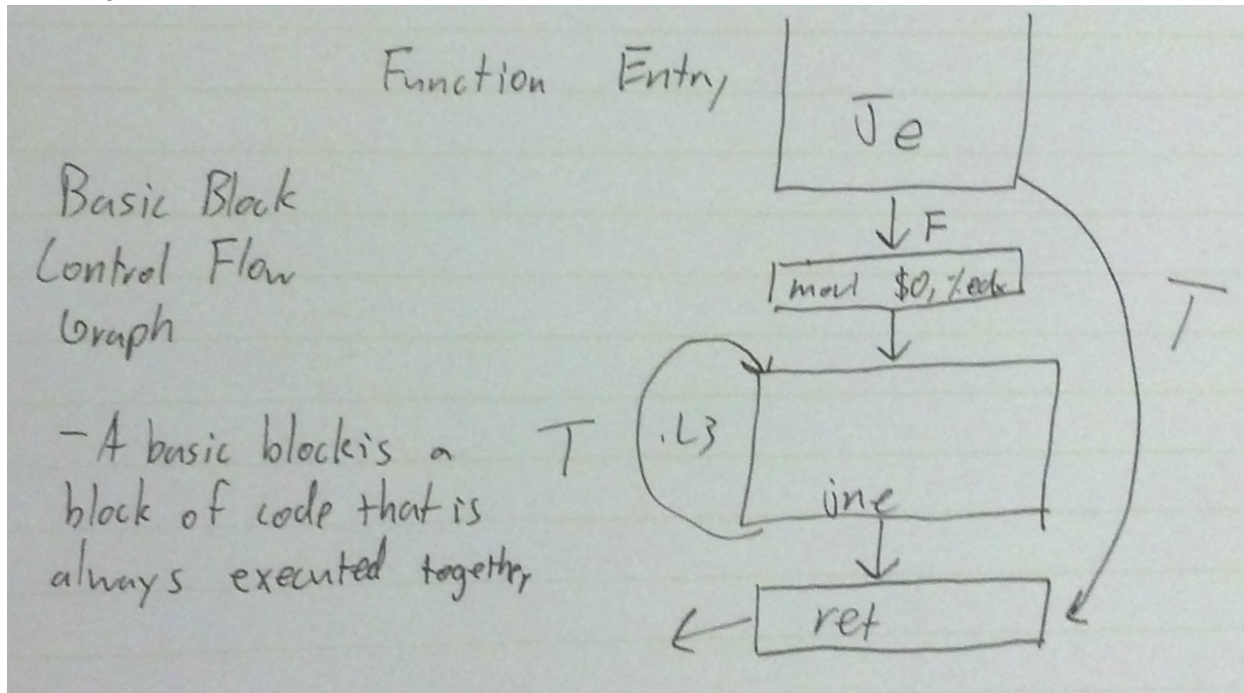 Function Entry
Je
Basic Block
Control Flow
Graph
F
movl $0, %edx
T
- A basic block is a
block of code that is
always executed together
T
.L3
jne
ret